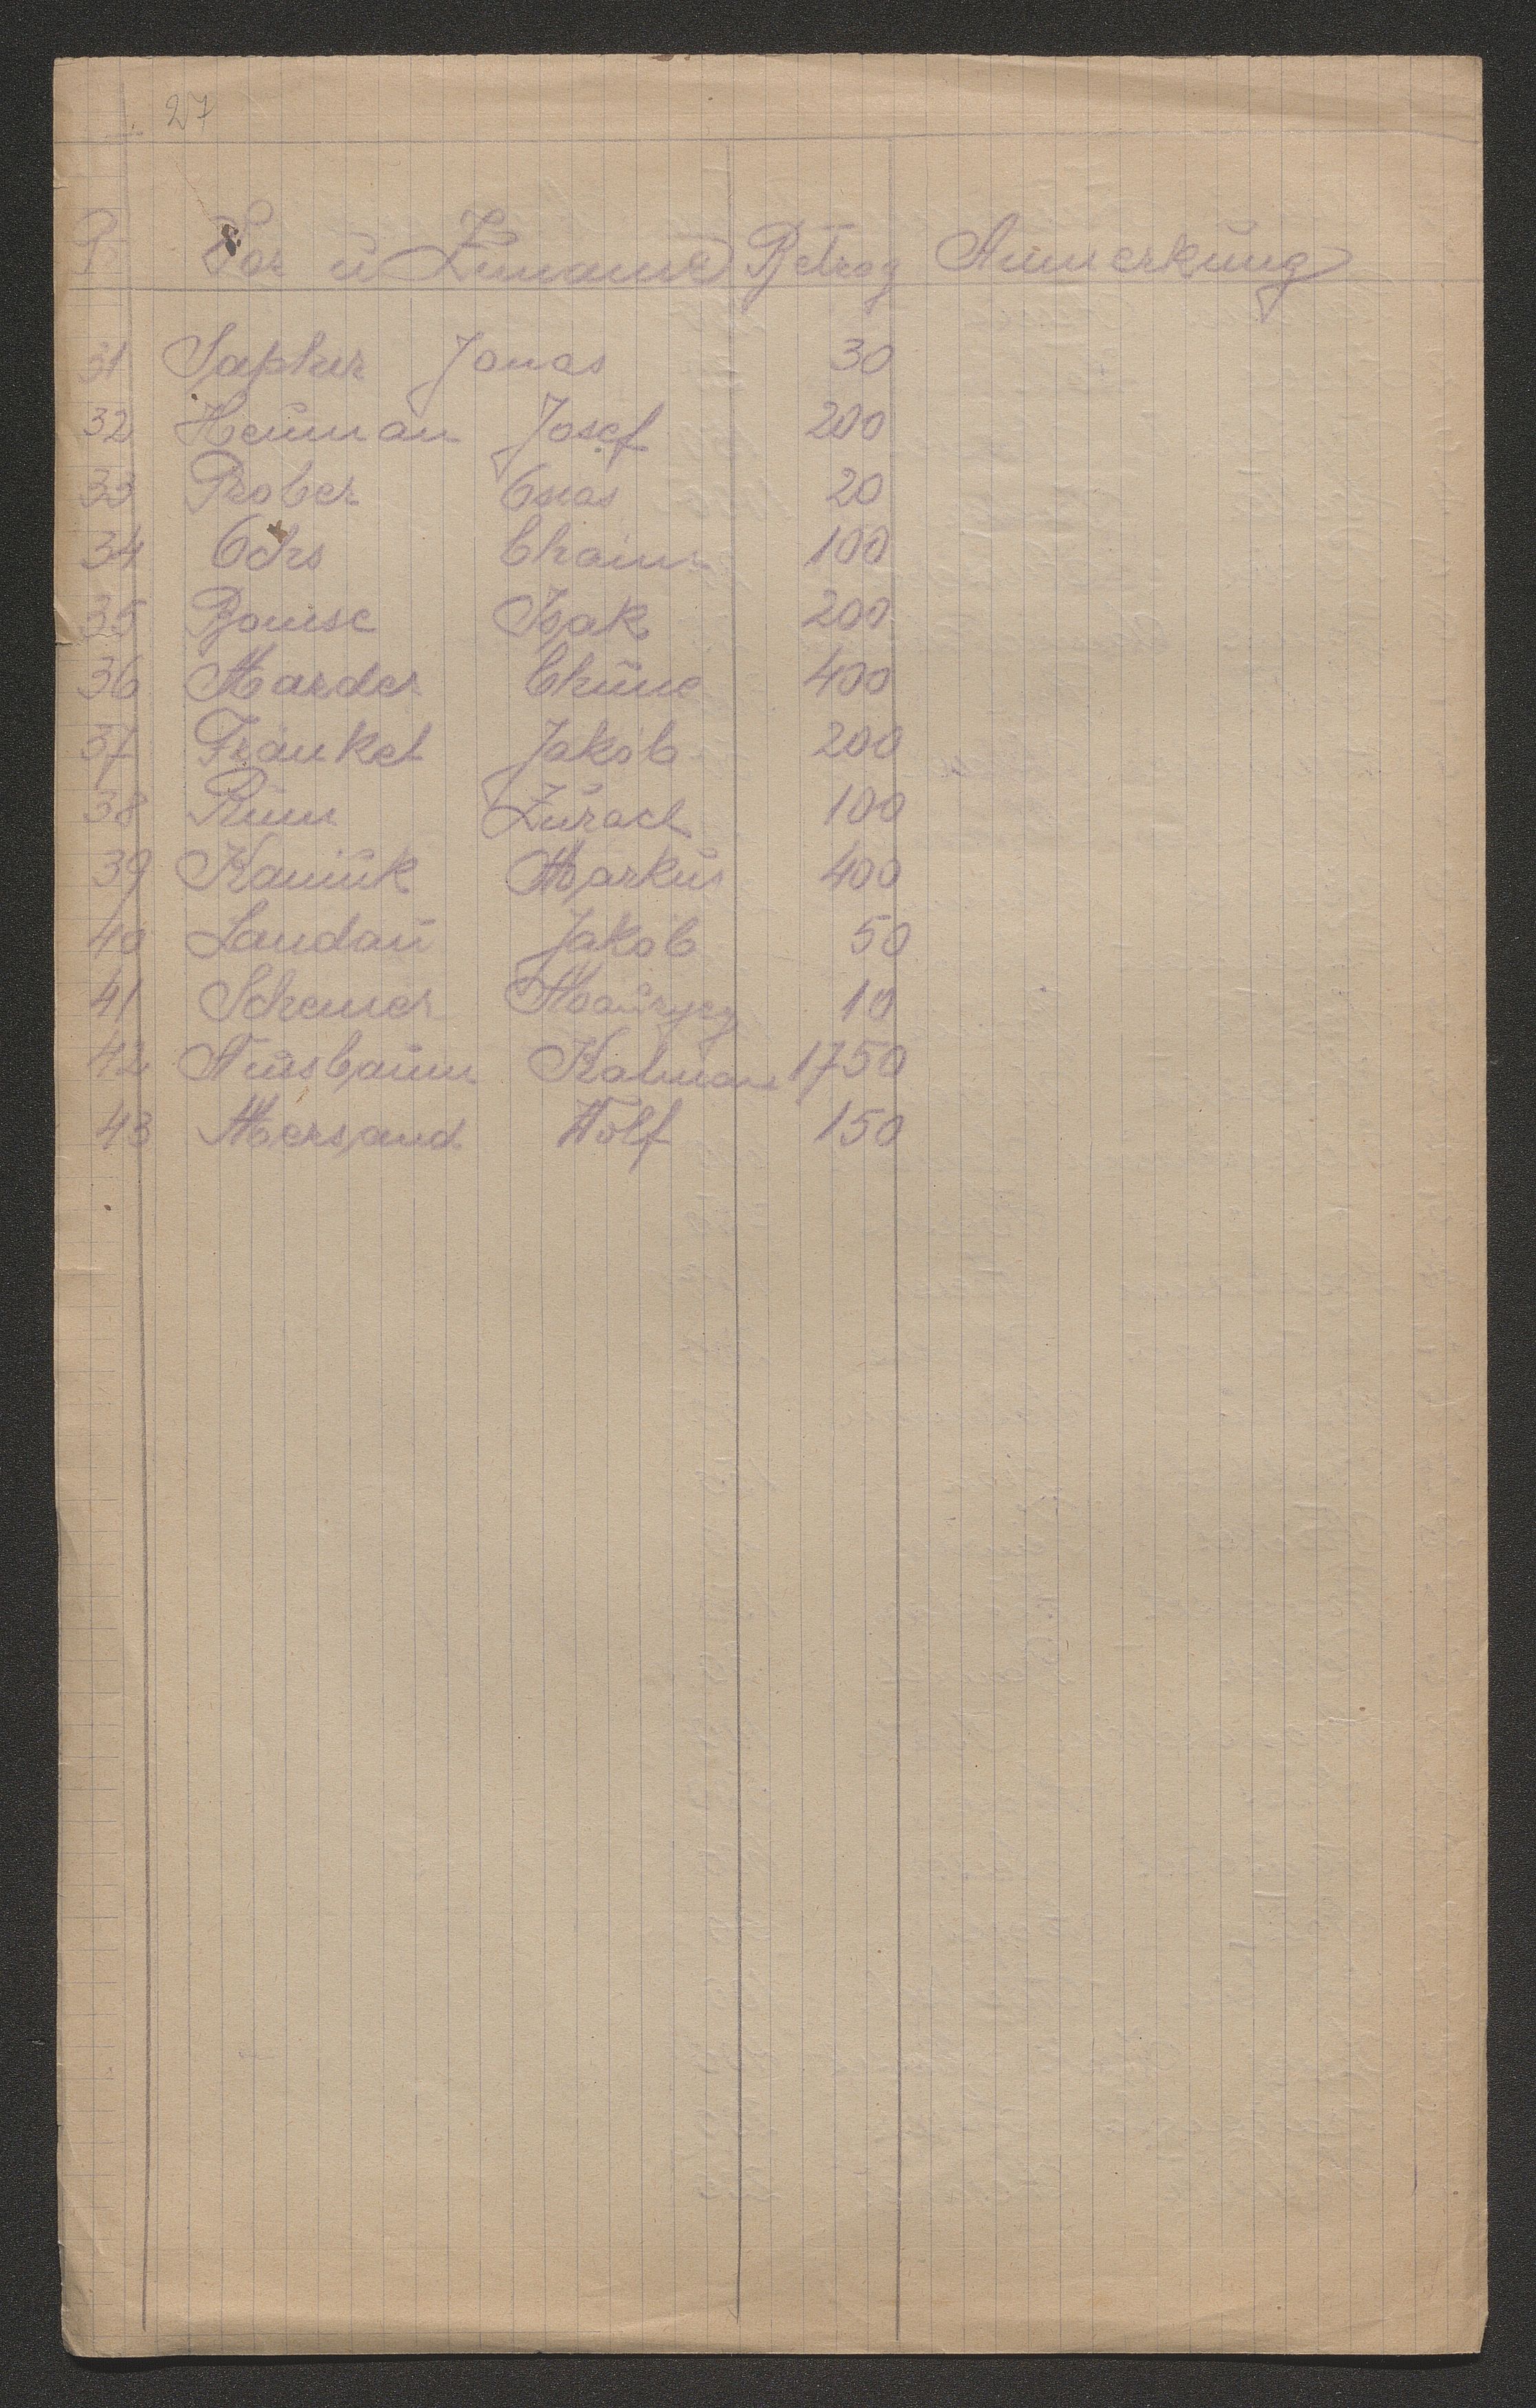 27
P. Vor u Zuname Betrag Anmerkung
31 Sapher Jonas 30
32 Heuman Josef 200
33 Prober Osias 20
34 Ochs Chaim 100
35 Bomse Isak 200
36 Marder Chune 400
37 Frankel Jakob 200
38 100
39 Kaniuk Markus 400
40 Landau Jakob 50
41 10
42 Nusbaum Kalman 1750
43 Mersand Wolf 150